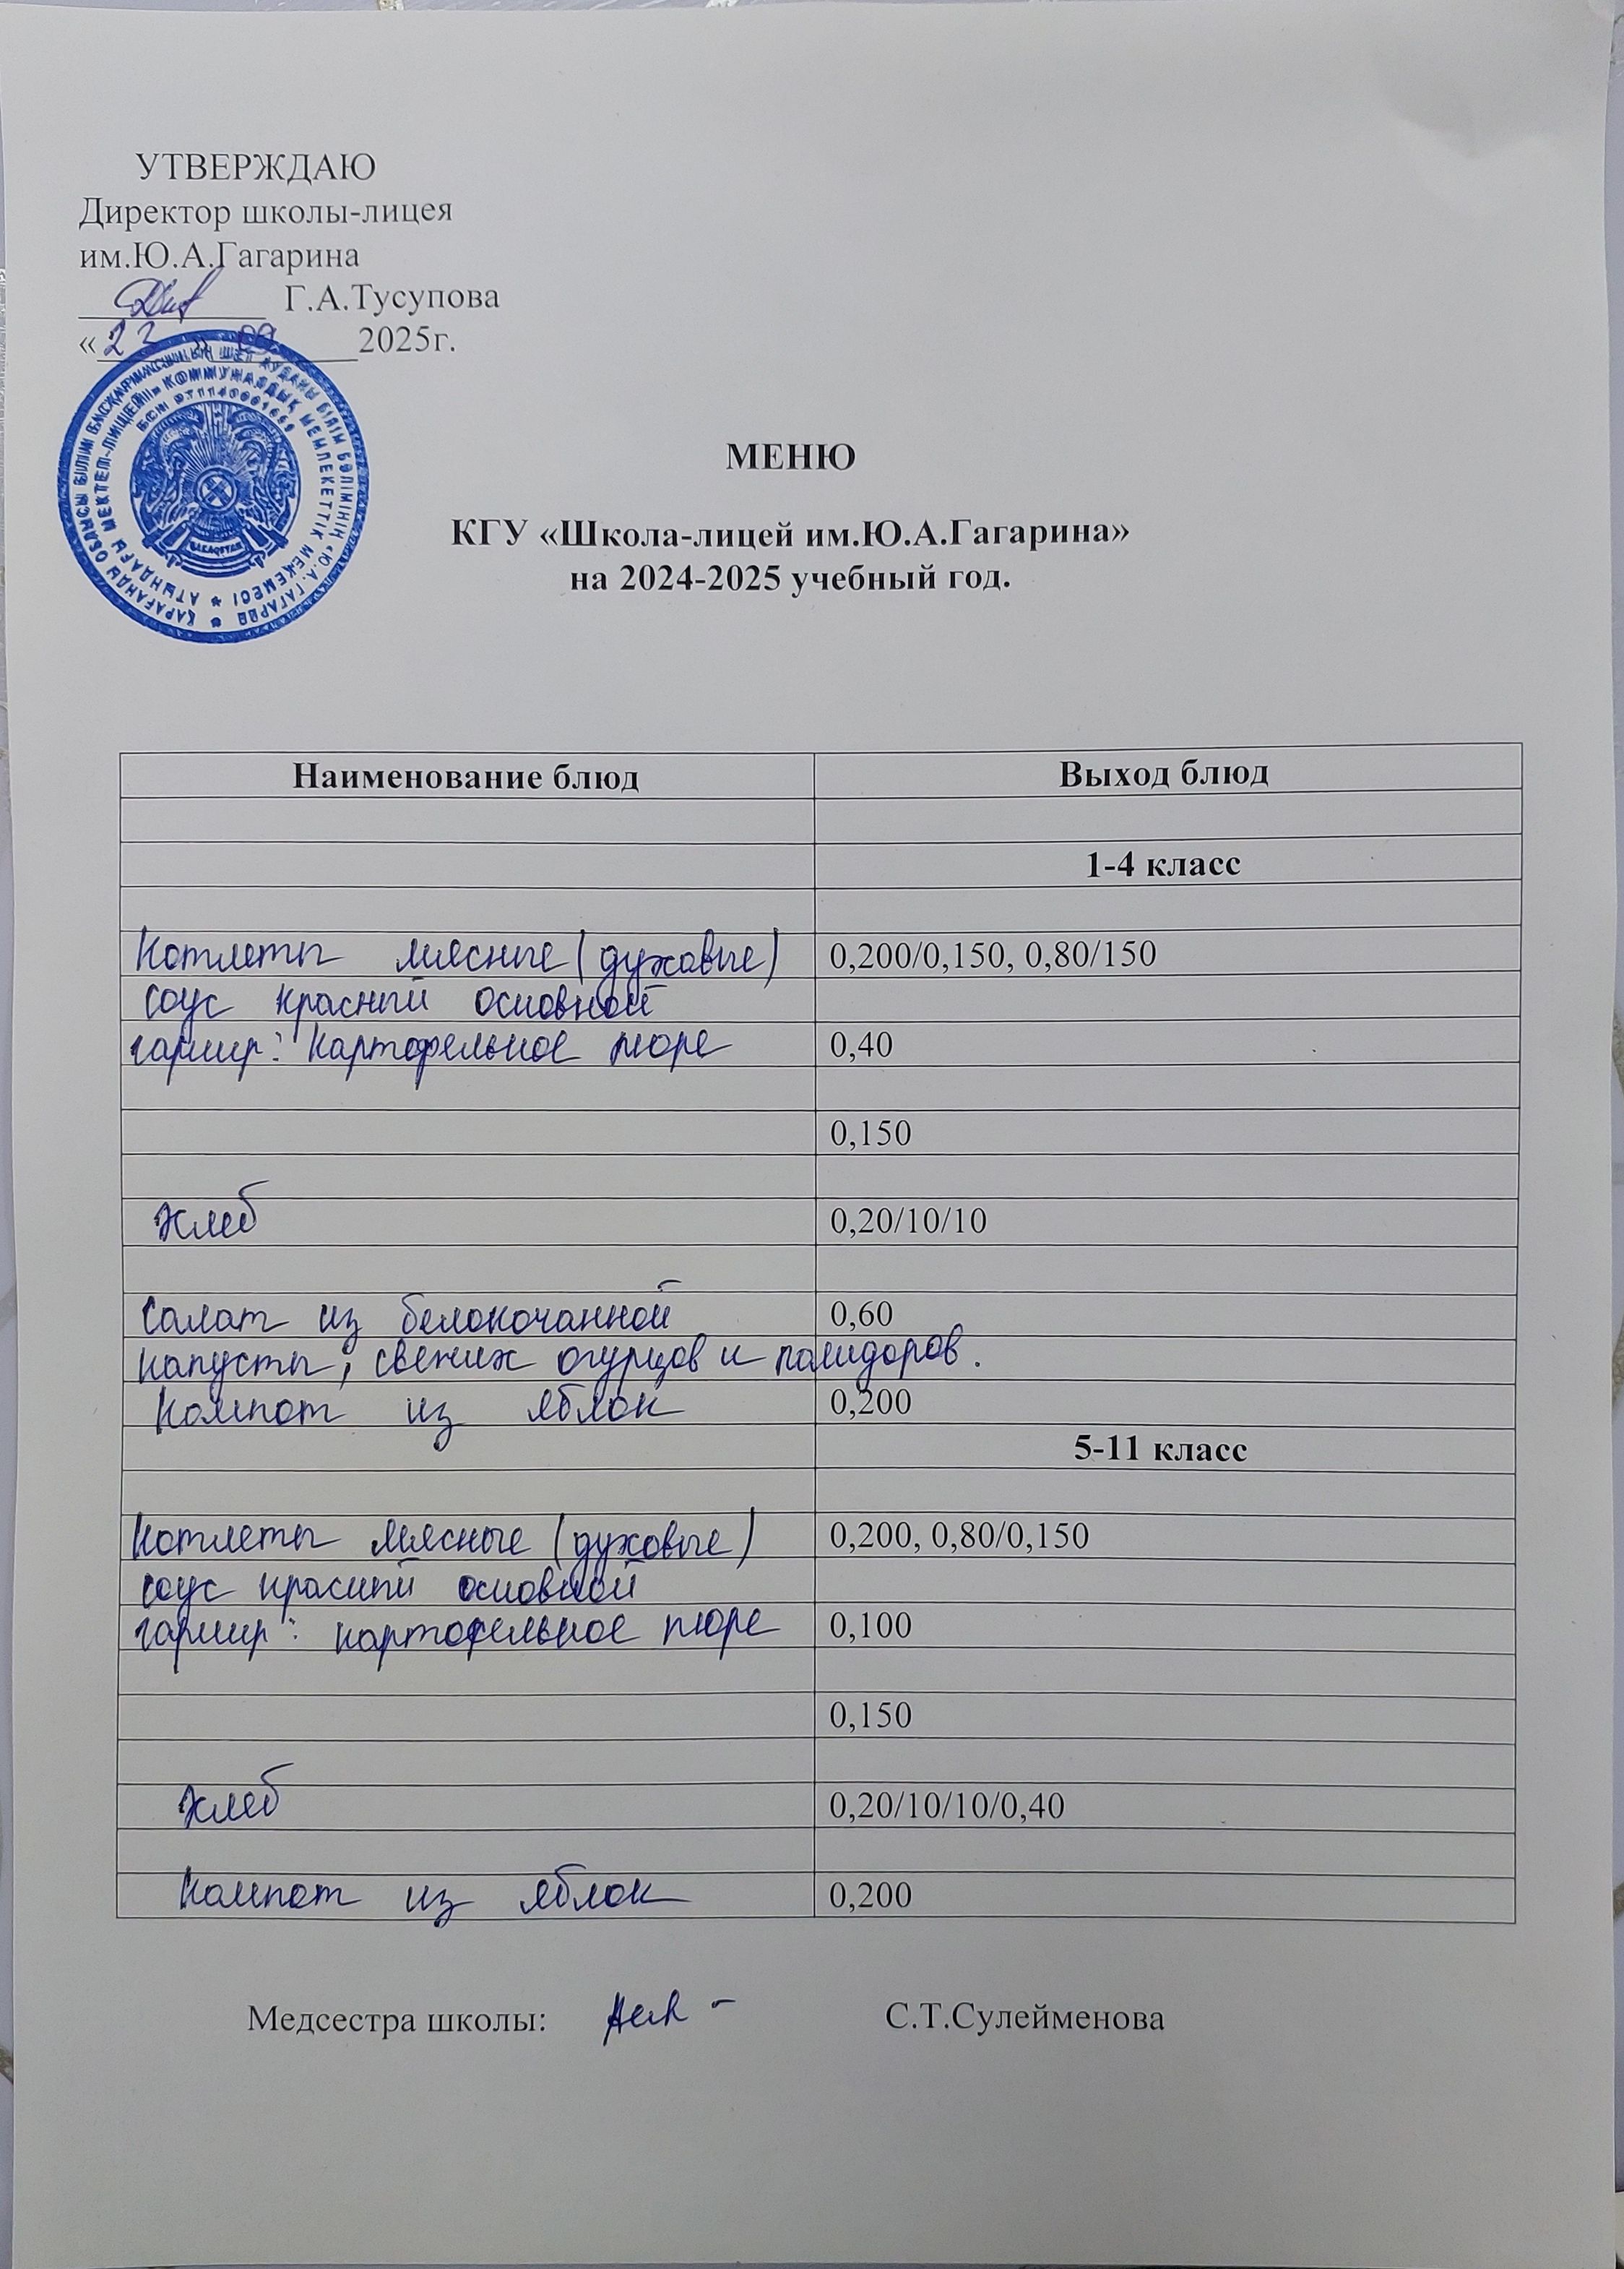 УТВЕРЖДАЮ
Директор школы-лицея
им.Ю.А.Гагарина
Г.А.Тусупова
«23 » 09 2025г.
МЕНЮ
КГУ «Школа-лицей им.Ю.А.Гагарина»
на 2024-2025 учебный год.
Наименование блюд Выход блюд
1-4 класс
Котлеты мясные (духовые) 0,200/0,150, 0,80/150
соус красный основной
гарнир: картофельное пюре 0,40
0,150
Хлеб 0,20/10/10
Салат из белокочанной 0,60
капусты, свежих огурцов и помидоров.
Компот из яблок 0,200
5-11 класс
Котлеты мясные (духовые) 0,200, 0,80/0,150
соус красный основной
гарнир: картофельное пюре 0,100
0,150
Хлеб 0,20/10/10/0,40
Компот из яблок 0,200
Медсестра школы: С.Т.Сулейменова